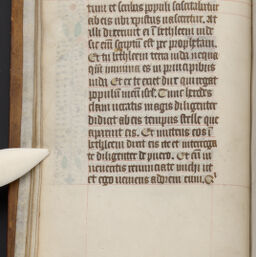 tium et scribas populi sciscitabatur
ab eis ubi xpistus nasceretur. At
illi dixerunt ei in bethleem iude
sic eni sciptū est per prophetam.
Et tu bethleem terra iuda nequa
quā minima es in principibus
iuda ex te exiet dux qui regat
populū meū isrl. Tunc herodes
clam uocatis magis diligenter
didicit ab eis tempus stelle que
aparuit eis. Et mittens eos ī
bethleem dixit eis ite et interroga
te diligenter de puero. Et cū in
ueneritis renunciate michi ut
et ego ueniens adorem eum.